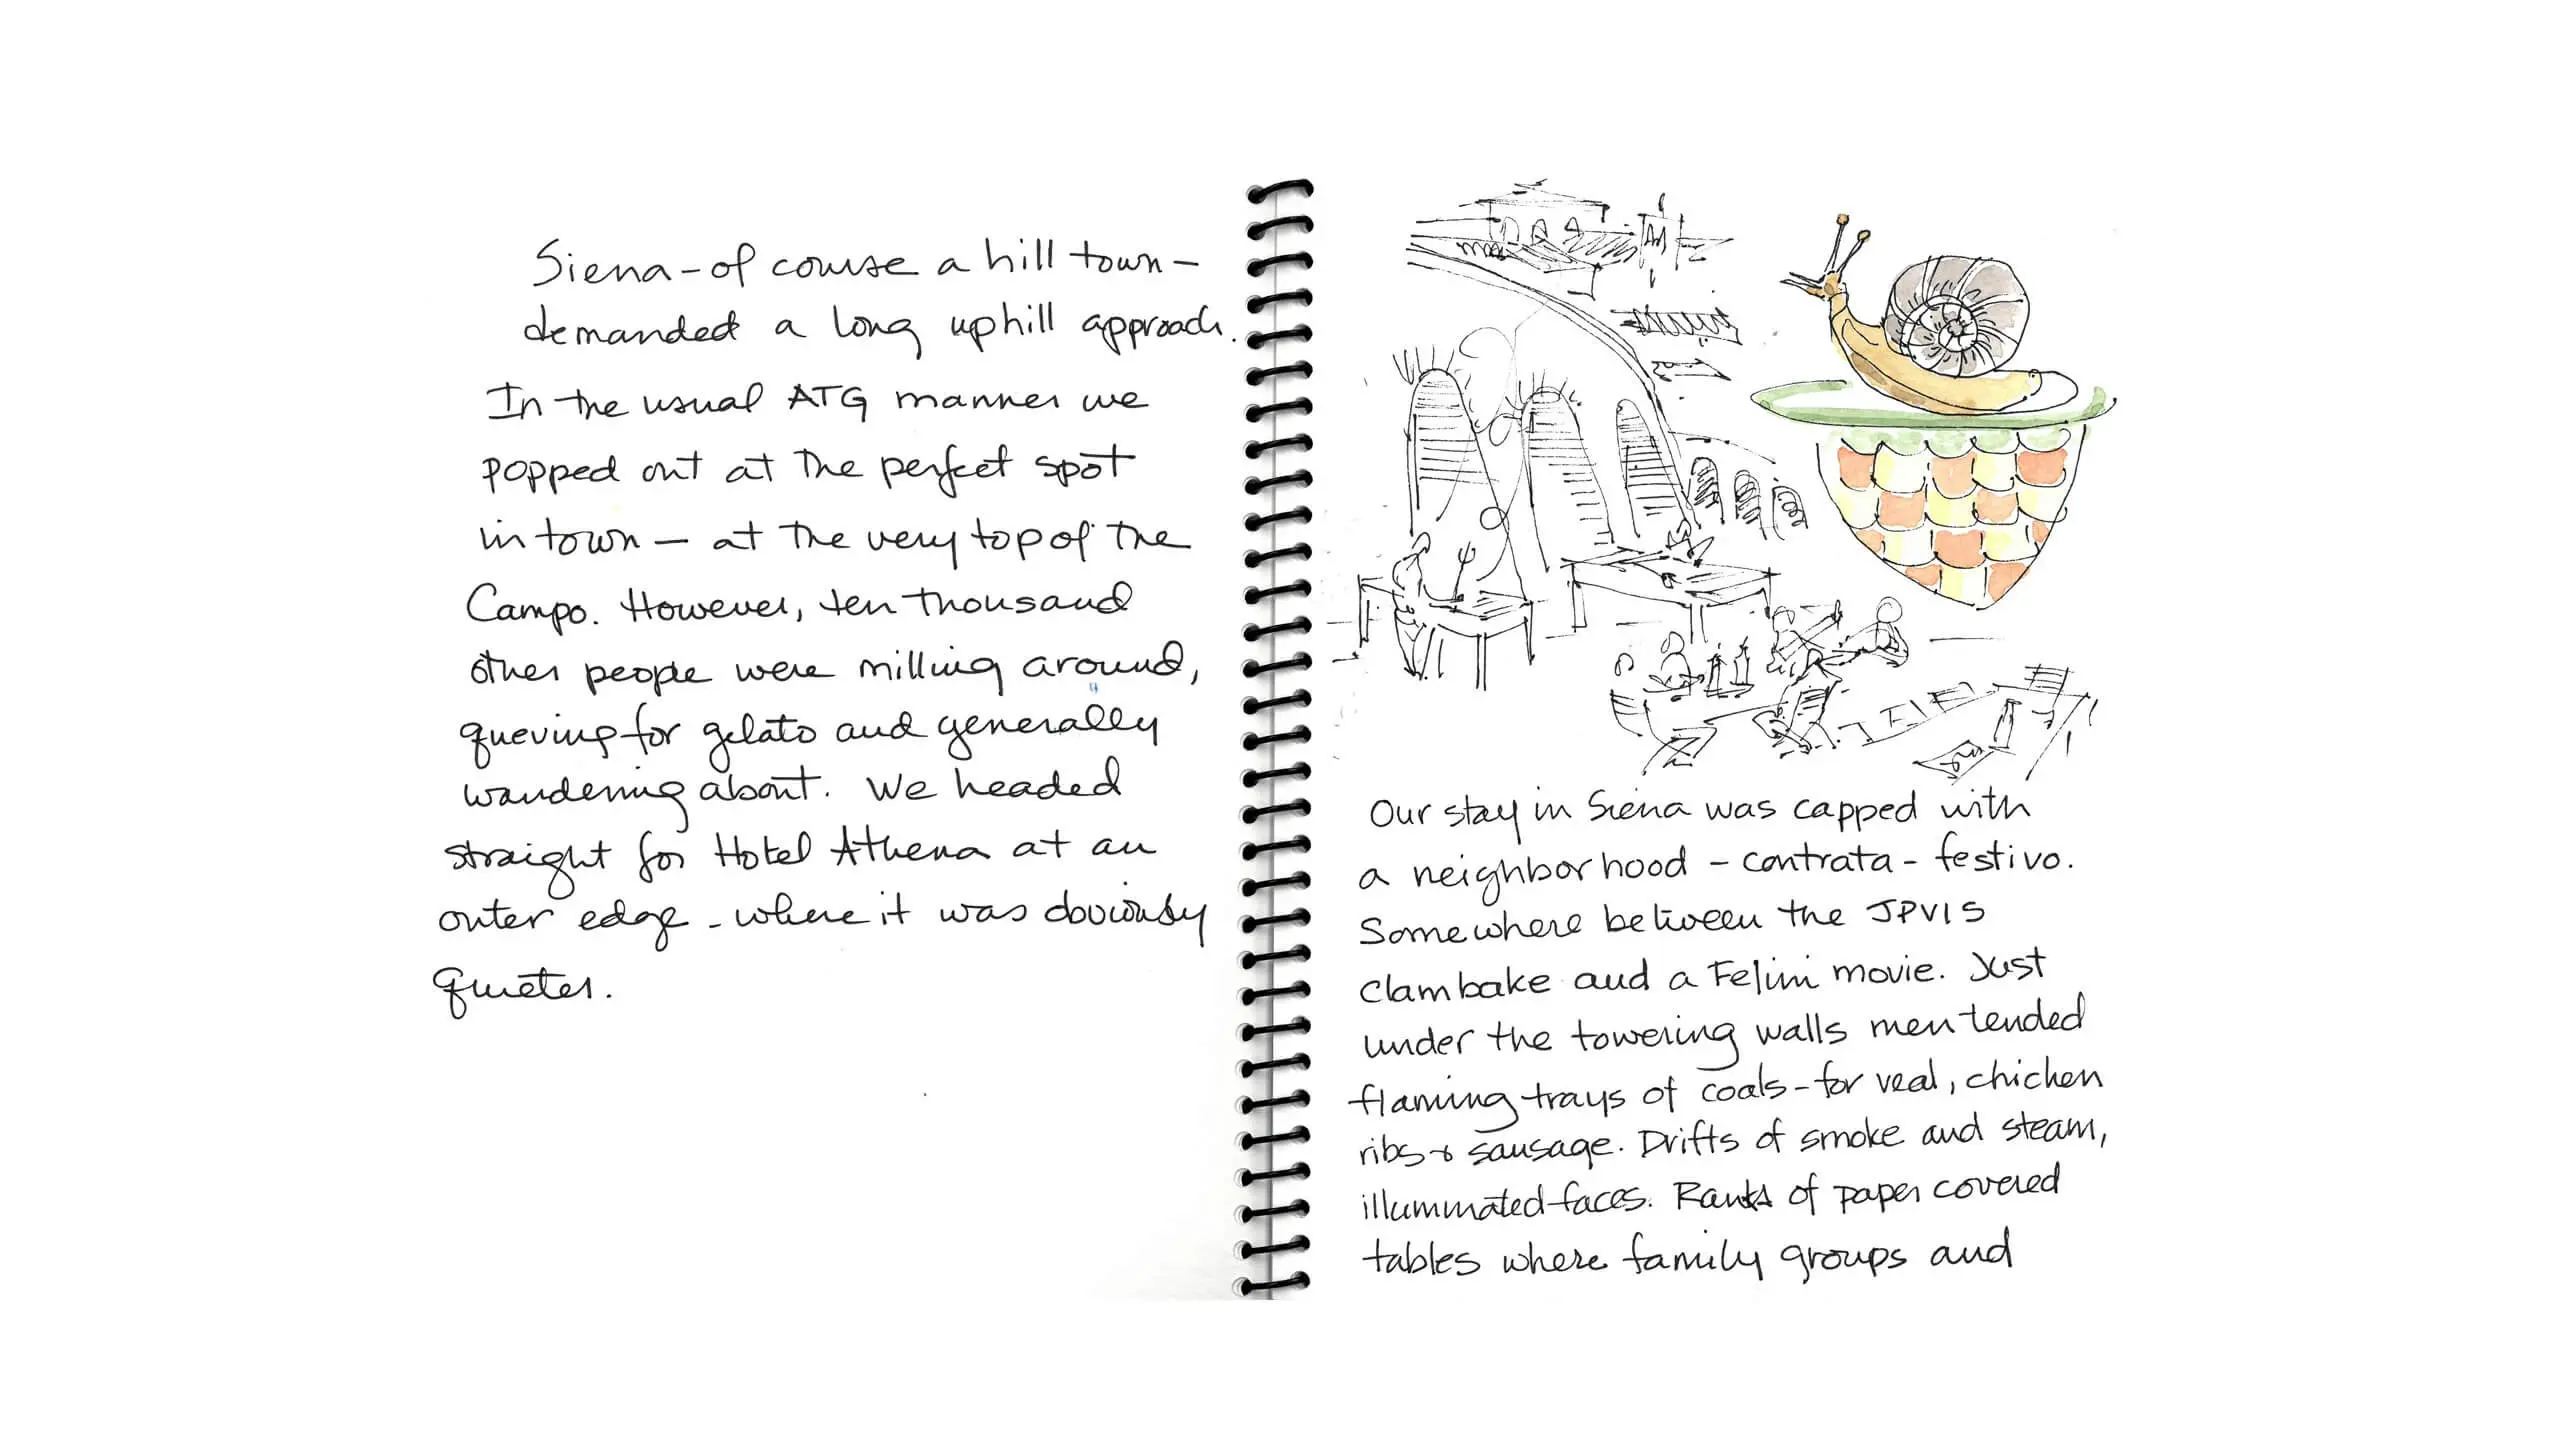 Siena - of course a hill town -
demanded a long uphill approach.
In the usual ATG manner we
popped out at the perfect spot
in town - at the very top of the
Campo. However, ten thousand
other people were milling around,
queuing for gelato and generally
wandering about. We headed
straight for Hotel Athena at an
outer edge - where it was obviously
quieter.
Our stay in Siena was capped with
a neighborhood - contrata - festivo.
Somewhere between the JPVIS
clambake and a Felini movie. Just
under the towering walls men tended
flaming trays of coals - for veal, chicken
ribs & sausage. Drifts of smoke and steam,
illuminated faces. Ranks of paper covered
tables where family groups and